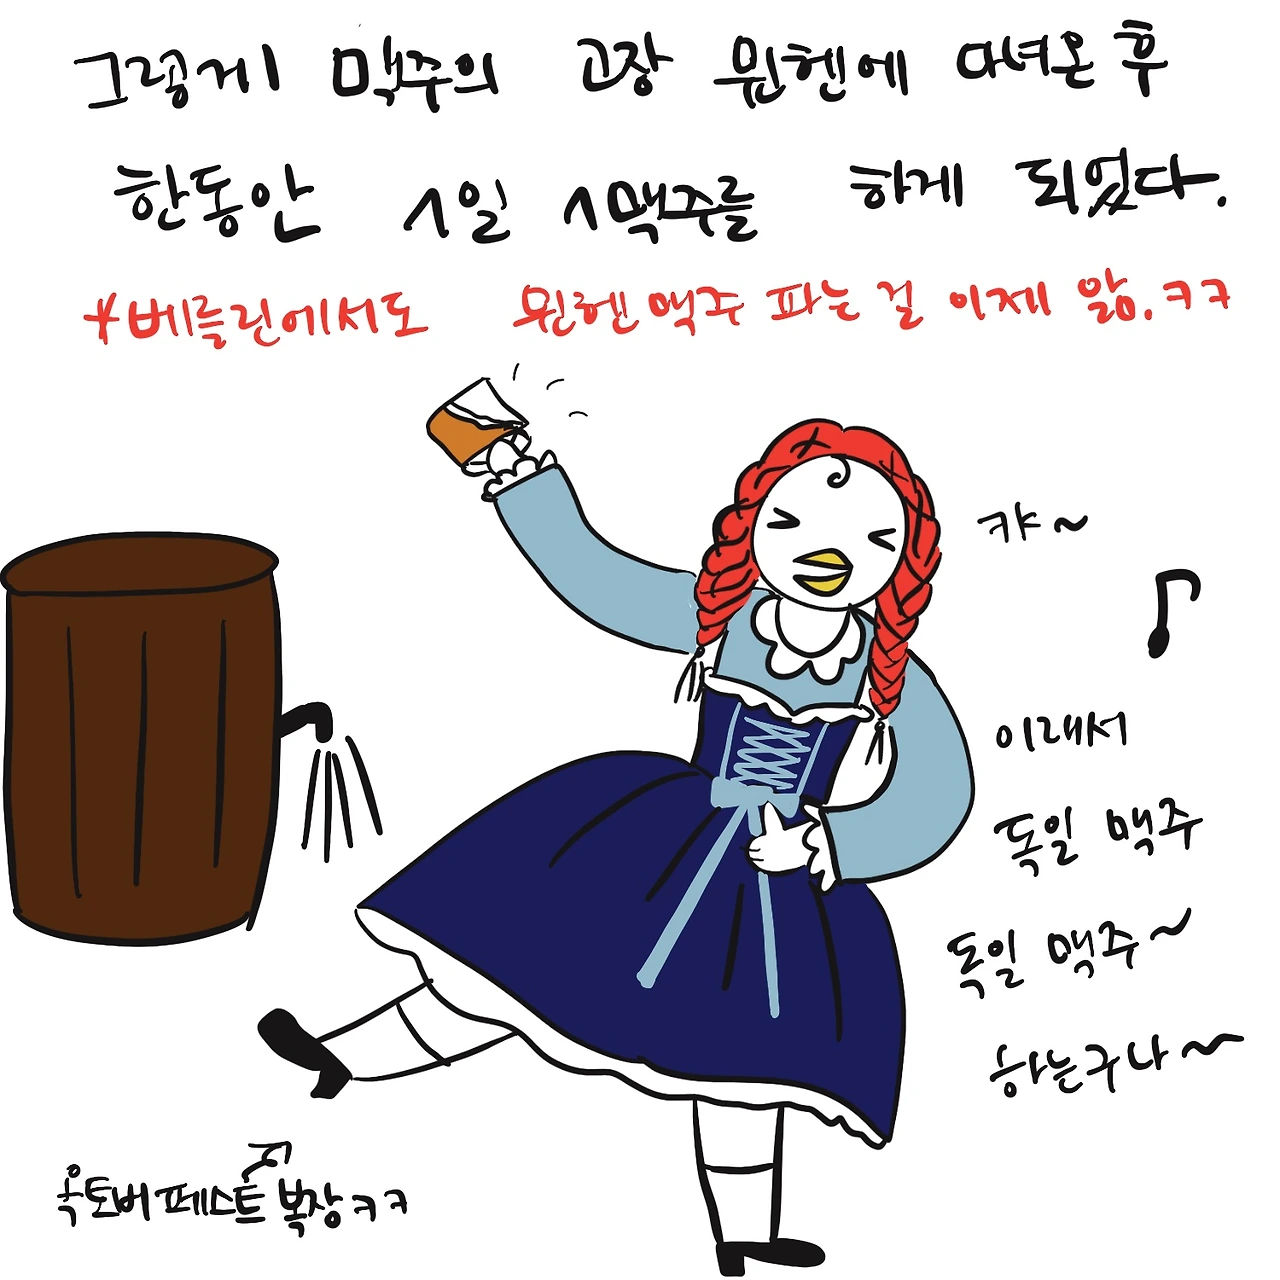 그렇게 맥주의 고장 뮌헨에 다녀온 후
한동안 1일 1맥주를 하게 되었다.
*베를린에서도 뮌헨 맥주 파는 걸 이제 앎.ㅋㅋ
캬~
이래서
독일 맥주
독일 맥주~
하는구나~
옥토버페스트 복장ㅋㅋ